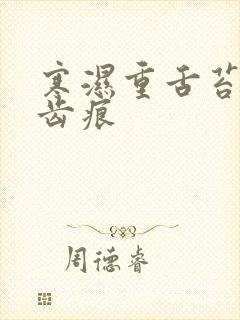 寒濕重舌苔
齿痕
周德睿